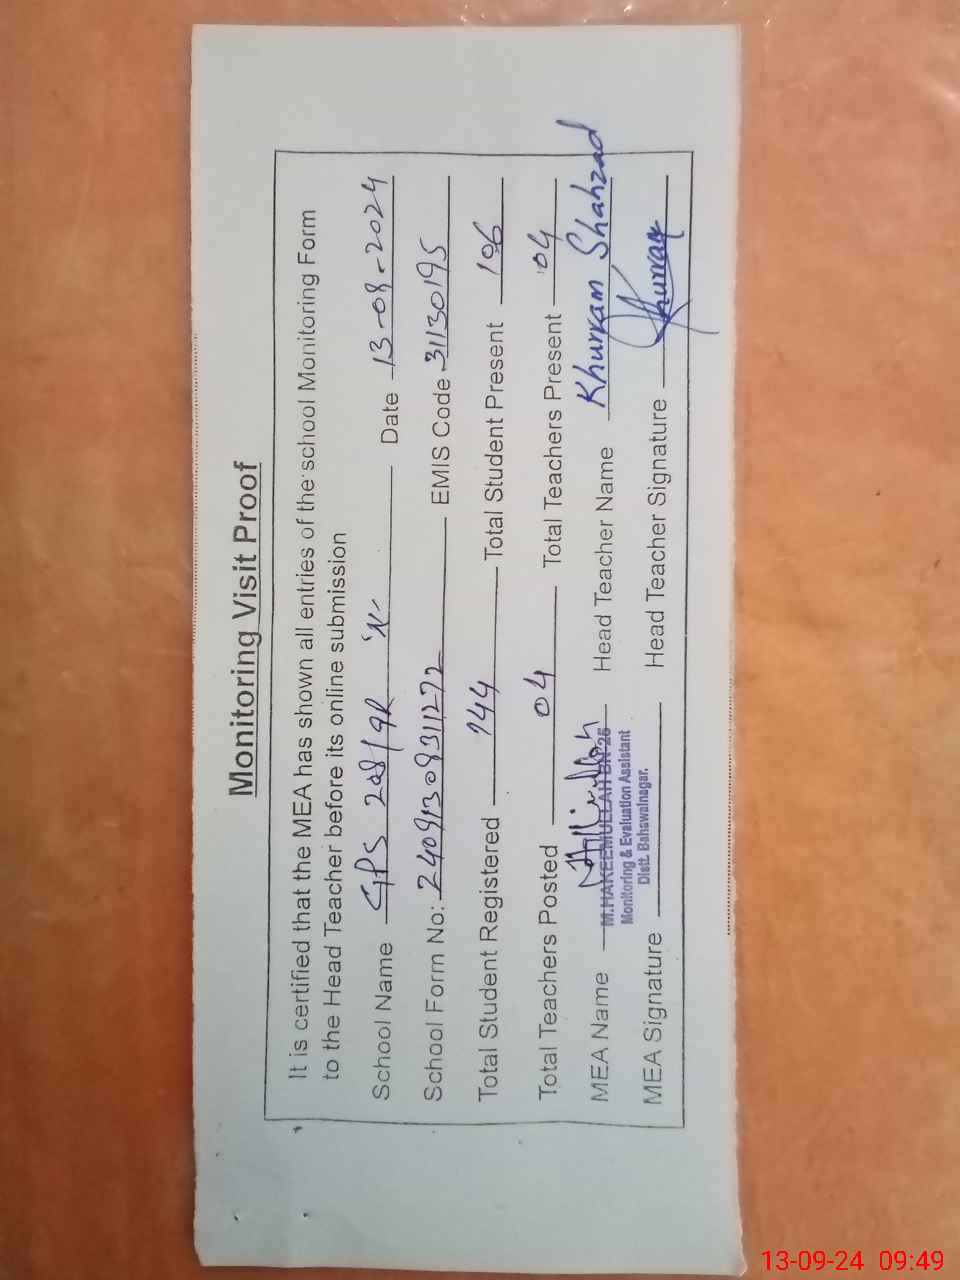 Monitoring Visit Proof
It is certified that the MEA has shown all entries of the school Monitoring Form
to the Head Teacher before its online submission
School Name GPS 208/9R 'N' Date 13-09-2024
School Form No: 24091308311272 EMIS Code 31130195
Total Student Registered 144 Total Student Present 106
Total Teachers Posted 04 Total Teachers Present 04
MEA Name M.HAKEEMULLAH BN-26 Head Teacher Name Khurram Shahzad
Monitoring & Evaluation Assistant
Distt. Bahawalnagar.
MEA Signature Head Teacher Signature Khurram
13-09-24 09:49